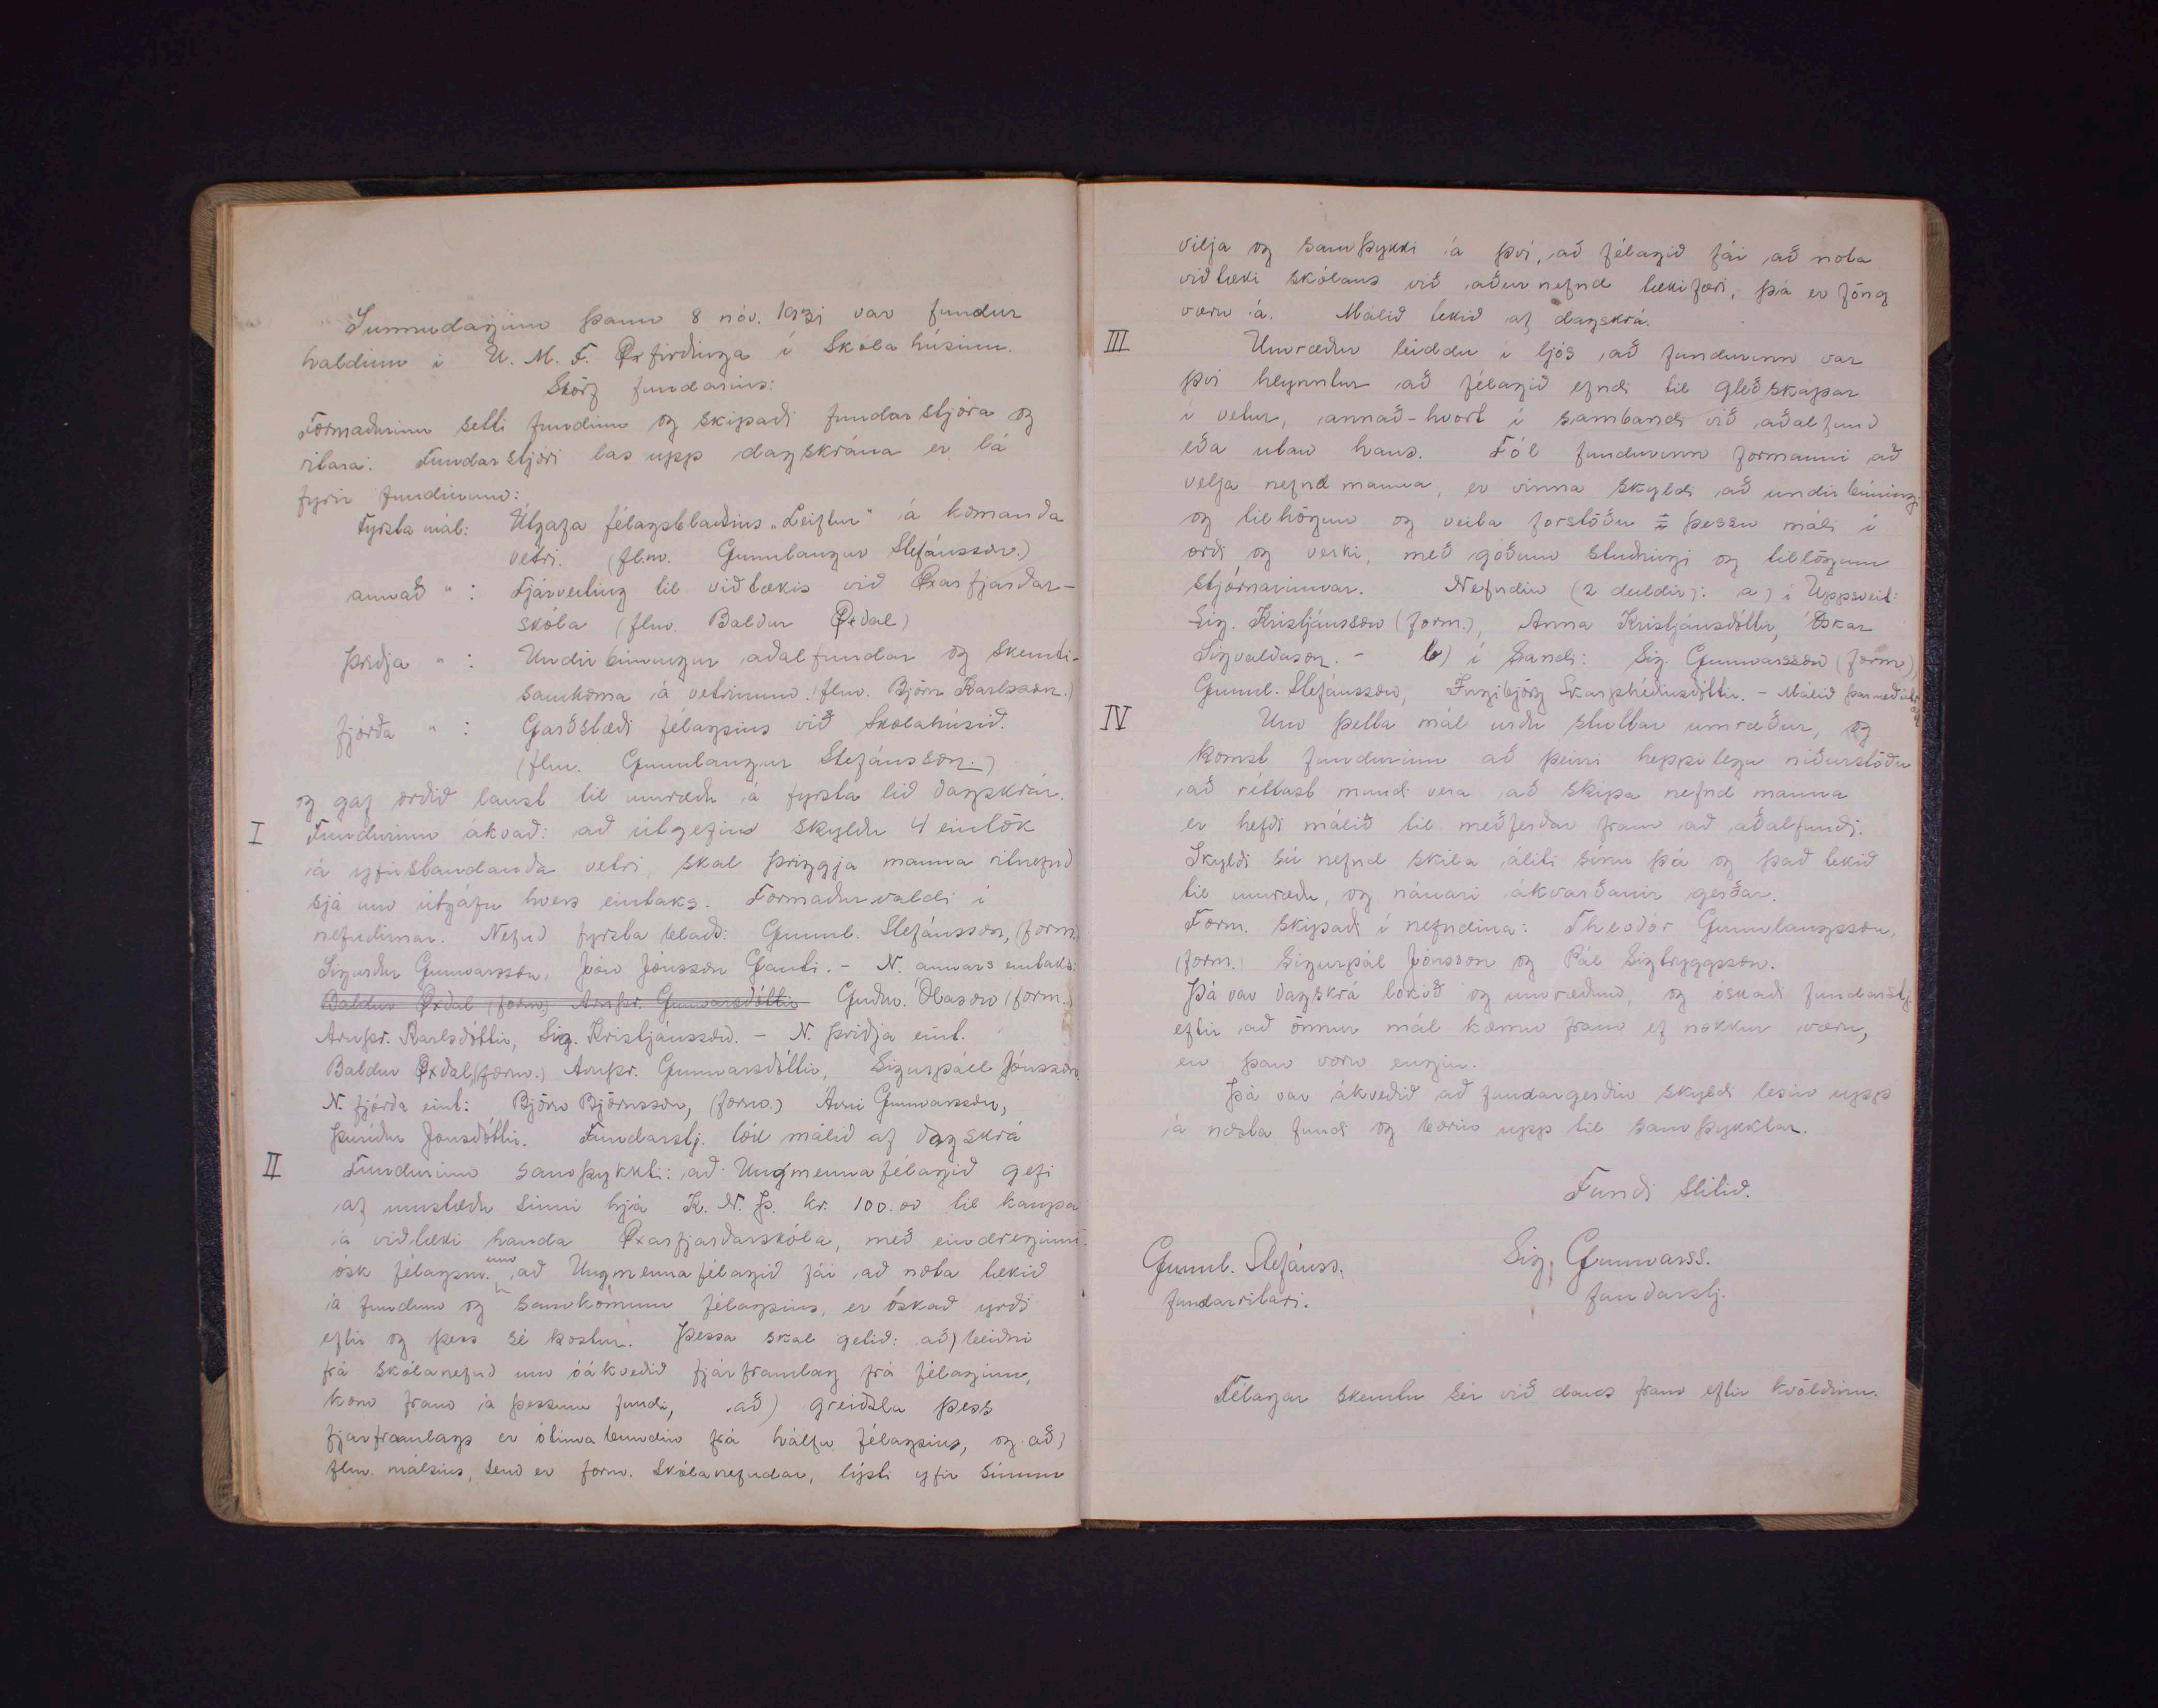 Sunnudaginn þann 8 nóv. 1931 var fundur
haldinn í U. M. F. Øxfirðinga í Skólahúsinu.
Störf fundarins:
Formaðurinn setti fundinn og skipaði fundarstjóra og
ritara. Fundarstjóri las upp dagskrána er lá
fyrir fundinum:
Fyrsta mál: Útgáfa félagsblaðsins „Leiftur" á komanda
vetri. (flm. Gunnlaugur Stefánsson.)
annað " : Fjárveiting til viðtækis við Øxarfjarðar-
skóla (flm. Baldur Øxdal)
þriðja " : Undirbúningur aðalfundar og skemti-
samkoma á vetrinum. (flm. Björn Karlsson.)
fjórða " : Garðstæði félagsins við Skólahúsið.
(flm. Gunnlaugur Stefánsson.)
og gaf orðið laust til umræðu á fyrsta lið dagskrár.
I Fundurinn ákvað: að útgefin skyldu 4 eintök
á yfirstandanda vetri, skal þriggja manna ritnefnd
sjá um útgáfu hvers eintaks. Formaður valdi í
nefndirnar. Nefnd fyrsta blað: Gunnl. Stefánsson, (form.)
Sigurður Gunnarsson, Jón Jónsson Gauti. - N. annars eintaks:
Baldur Øxdal (form) Arnþr. Gunnarsdóttir Guðm. Ólason (form.)
Arnþr. Karlsdóttir, Sig. Kristjánsson. - N. þriðja eint.
Baldur Øxdal, (form.) Arnþr. Gunnarsdóttir, Sigurpáll Jónsson
N. fjórða eint: Björn Björnsson, (form.) Árni Gunnarsson,
Þuríður Jónsdóttir. Fundarstj. tók málið af dagskrá
II Fundurinn samþykkti: að Ungmennafélagið gefi
af innstæðu sinni hjá K. N. Þ. kr. 100.00 til kaupa
á viðtæki handa Øxarfjarðarskóla, með eindreginni
ósk félagsm. um að Ungmennafélagið fái að nota tækið
á fundum og samkomum félagsins, er óskað yrði
eftir og þess sé kostur. Þessa skal getið: að) beiðni
frá skólanefnd um óákveðið fjárframlag frá félaginu,
kom fram á þessum fundi, að) greiðsla þess
fjárframlags er ótímabundin frá hálfu félagsins, og að)
flm. málsins, sem er form. Skólanefndar, lýsti yfir sínum
vilja og samþykki á því, að félagið fái að nota
viðtæki skólans við áðurnefnd tækifæri, þá er föng
væru á. Málið tekið af dagskrá.
III Umræður leiddu í ljós að fundurinn var
því hlynntur að félagið efndi til gleðskapar
í vetur, annað-hvort í sambandi við aðalfund
eða utan hans. Fól fundurinn formanni að
velja nefnd manna, er vinna skyldi að undirbúningi
og tilhögun og veita forstöðu þessu máli í
orði og verki, með góðum stuðningi og tillögum
stjórnarinnar. Nefndin (2 deildir): a) í Uppsveit:
Sig. Kristjánsson (form.), Anna Kristjánsdóttir, Óskar
Sigvaldason. - b) í Sandi: Sig. Gunnarsson (form),
Gunnl. Stefánsson, Ingibjörg Skarphéðinsdóttir. - Málið þarmeð
IV Um þetta mál urðu stuttar umræður, og
komst fundurinn að þeirri heppilegu niðurstöðu
að réttast mundi vera að skipa nefnd manna
er hefði málið til meðferðar fram að aðalfundi.
Skyldi sú nefnd skila áliti sínu þá og það tekið
til umræðu, og nánari ákvarðanir gerðar.
Form. skipaði í nefndina: Theodór Gunnlaugsson,
(form.) Sigurpál Jónsson og Pál Sigtryggsson.
Þá var dagskrá lokið og umræðum, og óskaði fundarstj.
eftir að önnur mál kæmu fram ef nokkur væru,
en þau voru engin.
Þá var ákveðið að fundargerðin skyldi lesin upp
á næsta fundi og borin upp til samþykktar.
Fundi slitið.
Gunnl. Stefánss.
fundarritari.
Sig. Gunnarss.
fundarstj.
Félagar skemtu sér við dans fram eftir kvöldinu.